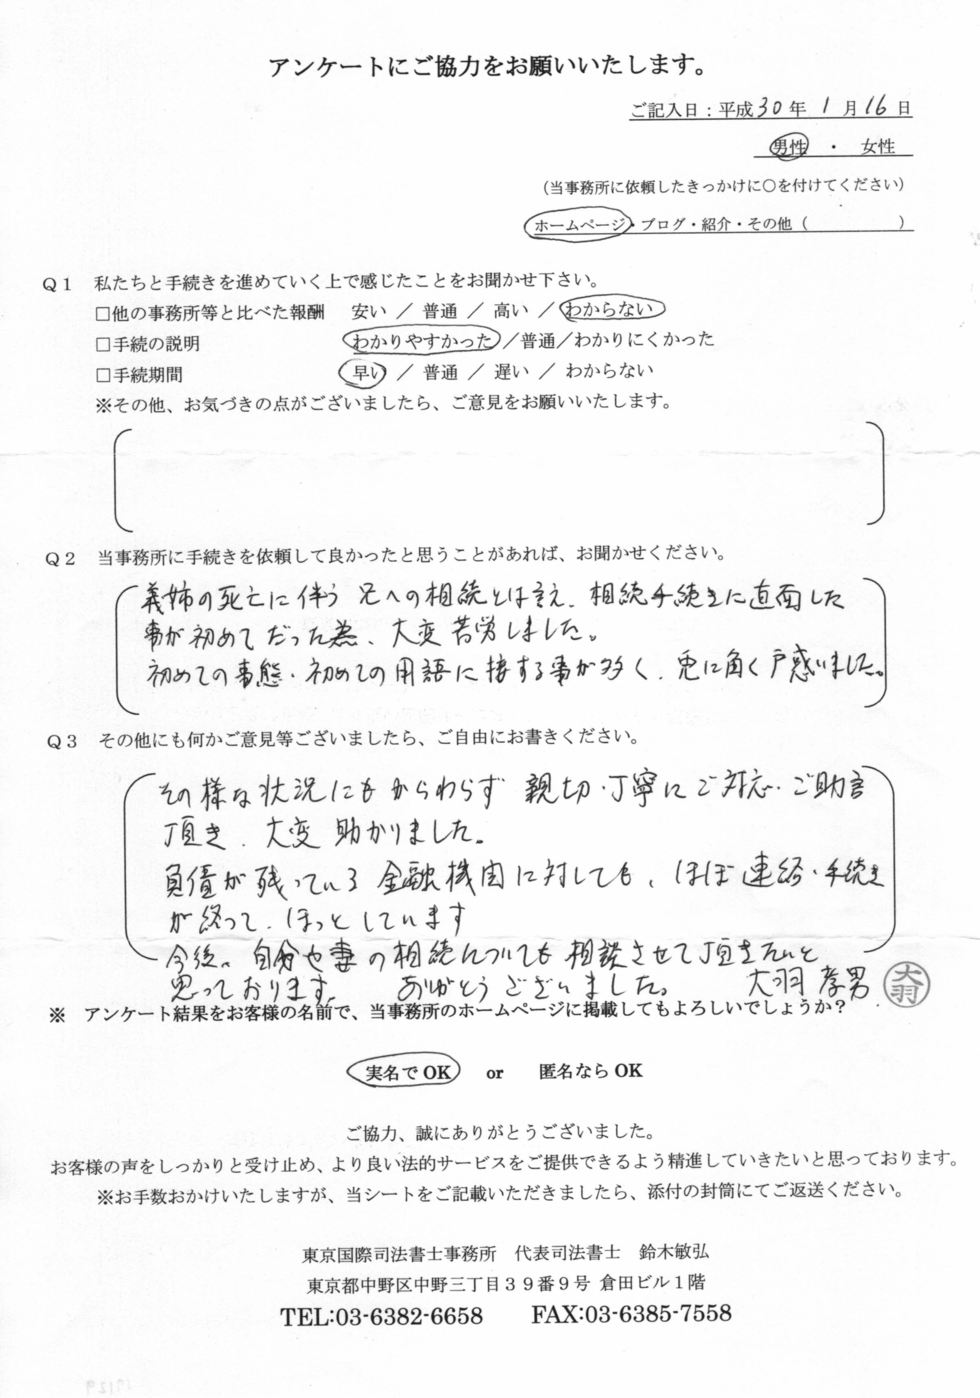 アンケートにご協力をお願いいたします。
ご記入日：平成30年 1月16日
男性 ・ 女性
（当事務所に依頼したきっかけに○を付けてください）
ホームページ・ブログ・紹介・その他（ ）
Ｑ１ 私たちと手続きを進めていく上で感じたことをお聞かせ下さい。
□他の事務所等と比べた報酬 安い ／ 普通 ／ 高い ／ わからない
□手続の説明 わかりやすかった ／普通／わかりにくかった
□手続期間 早い ／ 普通 ／ 遅い ／ わからない
※その他、お気づきの点がございましたら、ご意見をお願いいたします。
Ｑ２ 当事務所に手続きを依頼して良かったと思うことがあれば、お聞かせください。
義姉の死亡に伴う兄への相続とは言え、相続手続きに直面した
事が初めてだった為、大変苦労しました。
初めての事態・初めての用語に接する事が多く、兎に角く戸惑いました。
Ｑ３ その他にも何かご意見等ございましたら、ご自由にお書きください。
その様な状況にもかかわらず 親切・丁寧にご対応・ご助言
頂き、大変助かりました。
負債が残っている金融機関に対しても、ほぼ連絡・手続き
が終って、ほっとしています
今後、自分や妻の相続についても相談させて頂きたいと
思っております。 ありがとうございました。 大羽 孝男 大羽
※ アンケート結果をお客様の名前で、当事務所のホームページに掲載してもよろしいでしょうか？
実名でOK or 匿名ならOK
ご協力、誠にありがとうございました。
お客様の声をしっかりと受け止め、より良い法的サービスをご提供できるよう精進していきたいと思っております。
※お手数おかけいたしますが、当シートをご記載いただきましたら、添付の封筒にてご返送ください。
東京国際司法書士事務所 代表司法書士 鈴木敏弘
東京都中野区中野三丁目３９番９号 倉田ビル１階
TEL:03-6382-6658 FAX:03-6385-7558